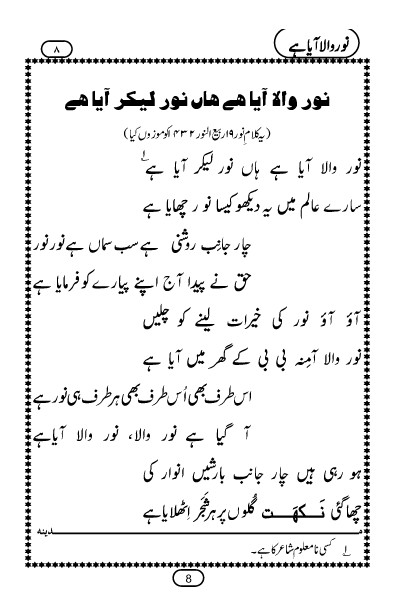 نور والا آیا ہے
۸
نور والا آیا ہے ہاں نور لیکر آیا ہے
(یہ کلامِ نور ۹ ربیع النور ۱۴۳۲ کو موزوں کیا)
نور والا آیا ہے ہاں نور لیکر آیا ہے ۱
سارے عالم میں یہ دیکھو کیسا نور چھایا ہے
چار جانب روشنی ہے سب سماں ہے نور نور
حق نے پیدا آج اپنے پیارے کو فرمایا ہے
آؤ آؤ نور کی خیرات لینے کو چلیں
نور والا آمِنہ بی بی کے گھر میں آیا ہے
اس طرف بھی اُس طرف بھی ہر طرف ہی نور ہے
آ گیا ہے نور والا، نور والا آیا ہے
ہو رہی ہیں چار جانب بارشیں انوار کی
چھا گئی نَکہَت گُلوں پر ہر شَجَر اِٹھلایا ہے
مدینہ
۱ کسی نامعلوم شاعر کا ہے۔
8